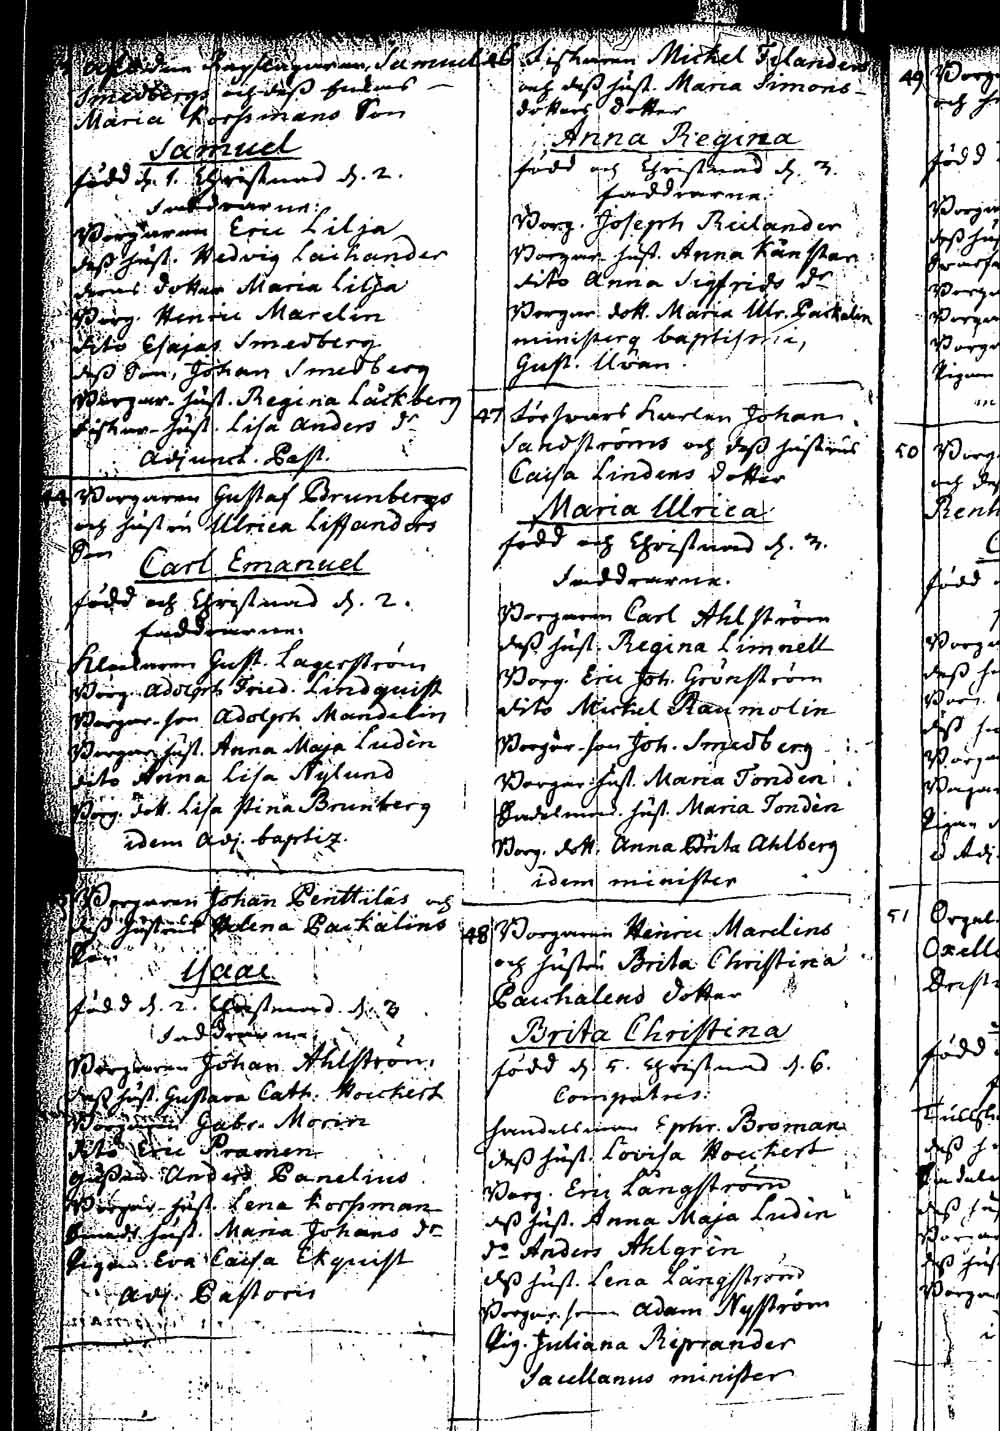 Samuel
Smedbergs och deß
Maria Korssmans Son
Samuel
född d. 1. Christnad d. 2.
Faddrarne:
Borgaren Eric Lilja
deß hust. Hedvig Laihander
deras dotter Maria Lilja
Borg. Henric Marelin
dito Esajas Smedberg
deß Son, Johan Smedberg
Borgar-hust. Regina Läckberg
Fiskar-hust. Lisa Anders dr
Adjunct. Past.
44 Borgaren Gustaf Brunbergs
och hustrus Ulrica Liffanders
Son
Carl Emanuel
född och Christnad d. 2.
Faddrarne:
Gust. Lagerström
Borg. Adolph Fried. Lindquist
Borgar-son Adolph Mandelin
Borgar hust. Anna Maja Ludên
dito Anna Lisa Nylund
Borg. dott. Lisa Stina Brunberg
idem Adj. baptiz.
Borgaren Johan Penttiläs och
deß hustrus Helena Packalins
Son
Isaac
född d. 2. Christnad d. 3
Faddrarne
Borgaren Johan Ahlström
deß hust. Gustava Cath. Houkert
Borgaren Gabr. Morin
dito Eric Pramen
Anders Panelius
Borgar-hust. Lena Korssman
hust. Maria Johans dr
Pigan Eva Caisa Ekquist
Adj. Pastoris
46 Fiskaren Mickel Filanders
och deß hust. Maria Simons-
dotters dotter
Anna Regina
född och Christnad d. 3.
Faddrarne:
Borg. Joseph Reilander
Borgar-hust. Anna Känstar
dito Anna Sigfrids dr
Borgar. dott. Maria Ulr. Packalin
baptismi,
Gust. Uvan.
47 Försvars Karlen Johan
Sandströms och deß hustrus
Caisa Lindens dotter
Maria Ulrica
född och Christnad d. 3.
Faddrarne.
Borgaren Carl Ahlström
deß hust. Regina Limnell
Borg. Eric Joh. Grönström
dito Mickel Raumolin
Borgar-son Joh. Smedberg
Borgar-hust. Maria Tondên
hust. Maria Tondên
Borg. dott. Anna Brita Ahlberg
idem minister
48 Borgaren Henric Marelins
och hustrus Brita Christina
Pauhalens dotter
Brita Christina
född d. 5. Christnad d. 6.
Compatres:
Handelsman Ephr. Broman
deß hust. Lovisa Houkert
Borg. Eric Långström
deß hust. Anna Maja Ludên
do Anders Ahlgrên
deß hust. Lena Långström
Borgar-sonen Adam Nyström
Pig. Juliana Reprander
Sacellanus minister
49 Borga
och
född
Borgar
deß hus
Borga
Borgar
Borga
Pigan
50 Borg.
och deß
Renh
född
Borga
deß h
Borg.
deß hu
Borga
Borgar
Pigan
51 Orgel
Oxelle
född
deß h
deß hus
Borgar
deß hus
Borgar